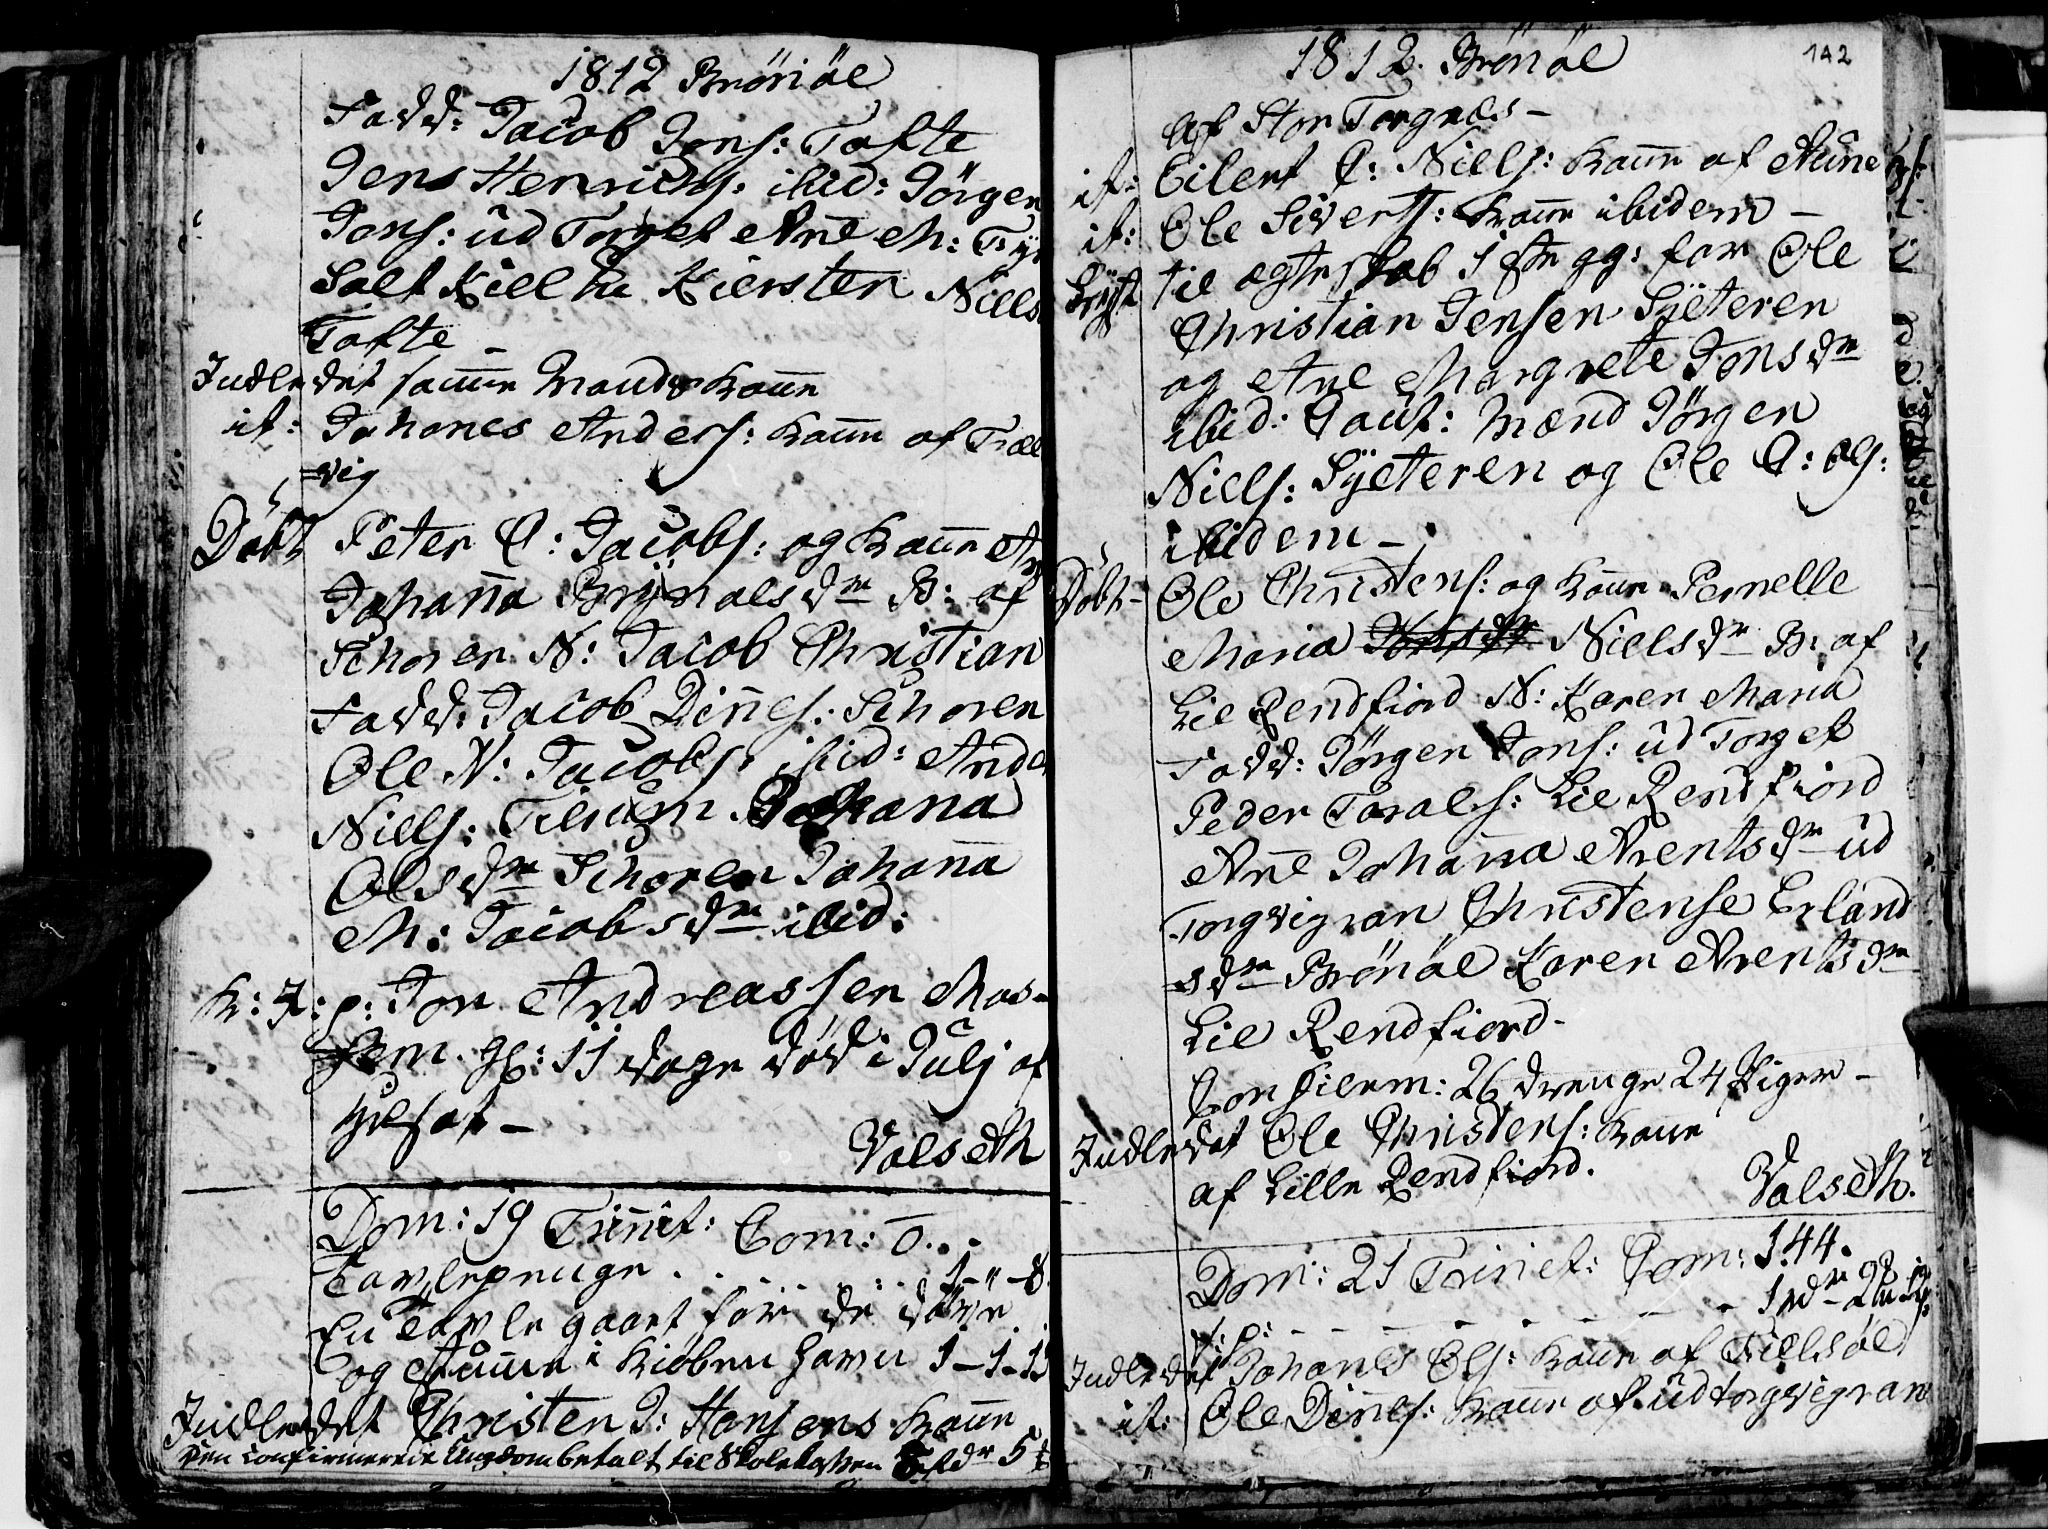 1812 Brönöe
Fadd: Jacob Jons: Tofte
Jens Henrichs: ibid: Jörgen
Jons: ud Torget Ane M:
Kiersten Niels
Tofte –
Indledet samme Mands Kone
it: Johanes Anders: Kone af Træl
=vig
Döbt Peter C: Jacobs: og Kone
Johanna Brÿnalsdr B: af
Schoren N: Jacob Christian
Fadd: Jacob Dines: Schoren
Ole N: Jacobs: ibid: Ande
Niels: Tilrum Johana
Olsdr Schoren Johana
M: Jacobsdr ibid:
K: J: p: Jon Andreassen Mos=
hem gl: 11 dage död i Julj af
Valseth
Dom: 19 Trinit: Com: 0.
Tavlepenge . . . . 1-"-8
En Tavle gaaet for de döve
og stumme i Kiöbenhavn 1-1-
Indledet Christen J: Hansens Kone
den confirmerede Ungdom betalt til Skolekassen 5
1812. Brönöe
142
af Stor Torgnes –
it: Eilert C: Niels: Kone af
it: Ole Siverts: Kone ibidem –
til ægteskab 1ste gg: for Ole
Christian Jensen Sÿeteren
og Ane Margrete Jonsdr
ibid: Caut: Mænd Jörgen
Niels: Sÿeteren og Ole C: Ols:
ibidem –
Döbt – Ole Christens: og Kone Pernelle
Maria Nielsdr B: af
Lie Rendfiord N: Karen Maria
Fadd: Jörgen Jons: ud Torget
Peder Torals: Lie Rendfiord
Ane Johana Arentsdr ud
Torgvigran Christense Erland
=sdr Brönöe Karen Arentsdr
Lie Rendfiord –
Confirm: 26 drenge 24 Piger –
Indledet Ole Christens: Kone
af Lille Rendfiord.
Valseth.
Dom: 21 Trinet: Com: 144.
t: p: – – – – – – – 1 rdr
Indledet Johanes Ols: Kone af Tielsöe
it: Ole Dines: Kone af udtorgvigran